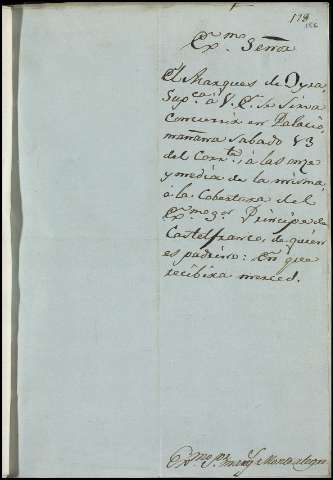 Ex.mo Señor
El Marques de Oyra,
Sup.ca á V.E. se sirva
concurrir en Palacio
mañana Sabado 23
del Corr.te, á las onze
y media de la misma,
á la Cobertura del
Ex.mo S.or Principe de
Castelfranco, de quien
es padrino: En que
recibira merced.
Ex.mo S.or Marq.s de Montealegre